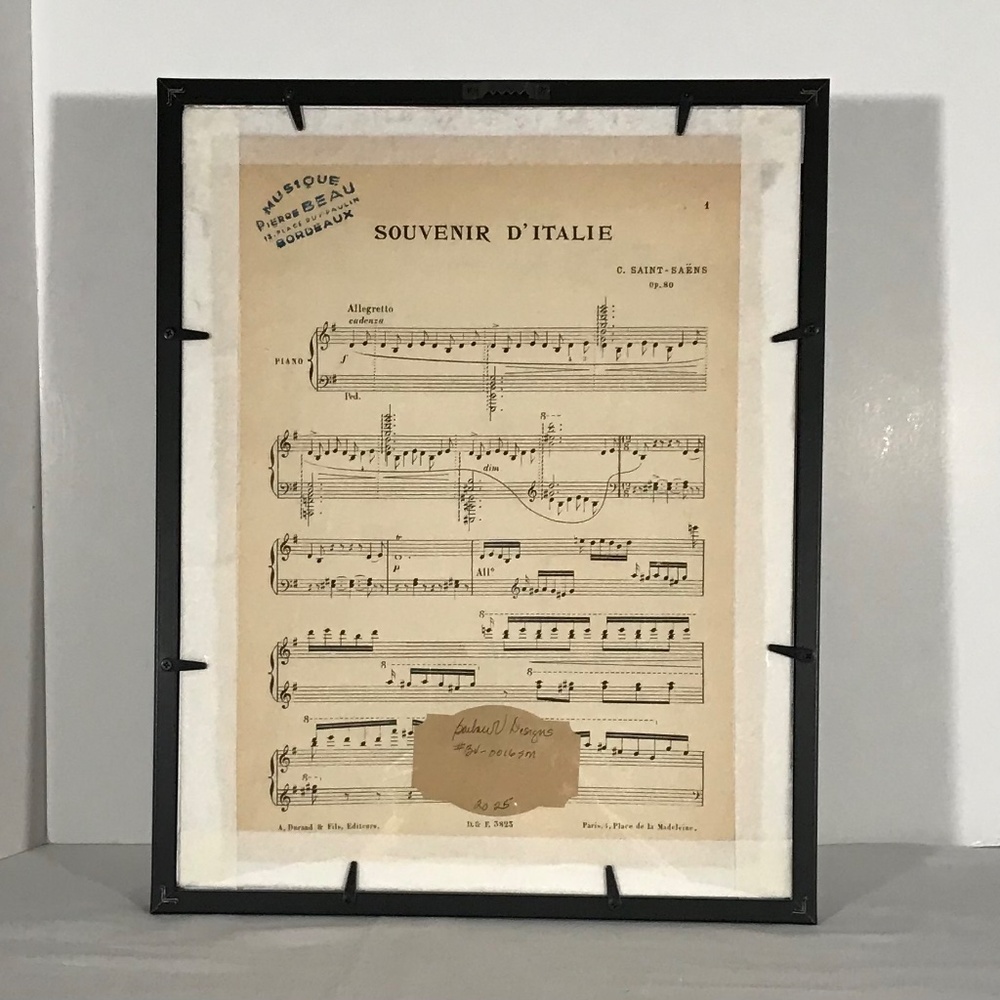 MUSIQUE
PIERRE BEAU
BORDEAUX
1
SOUVENIR D'ITALIE
C. SAINT-SAËNS
Op. 80
Allegretto
cadenza
PIANO
f
Ped.
8
dim
tr
p
All°
8
8
8
8
8
Designs
2025
A. Durand & Fils, Editeurs.
D. & F. 3823
Paris, 4, Place de la Madeleine.